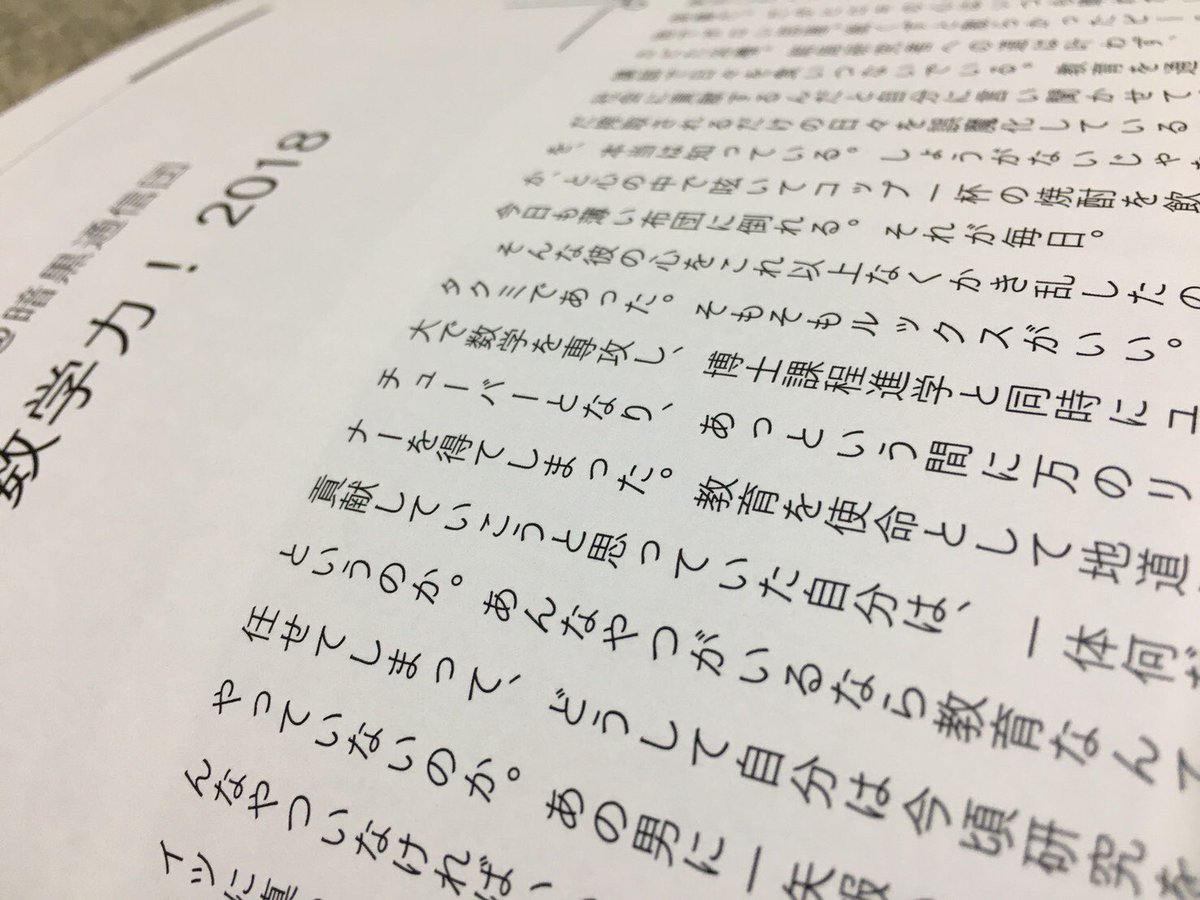 @暗黒通信団
数学力！2018
講師で日々を食いつないでいる。教育を通
社会に貢献するんだと自分に言い聞かせて
だ搾取されるだけの日々を誤魔化している
を、本当は知っている。しょうがないじゃ
か、と心の中で呟いてコップ一杯の焼酎を飲
今日も薄い布団に倒れる。それが毎日。
そんな彼の心をこれ以上なくかき乱したの
タクミであった。そもそもルックスがいい。
大で数学を専攻し、博士課程進学と同時にユ
チューバーとなり、あっという間に万のリ
ナーを得てしまった。教育を使命として地道
貢献していこうと思っていた自分は、一体何
というのか。あんなやつがいるなら教育なんて
任せてしまって、どうして自分は今頃研究を
やっていないのか。あの男に一矢報
んなやついなければ、
イツに